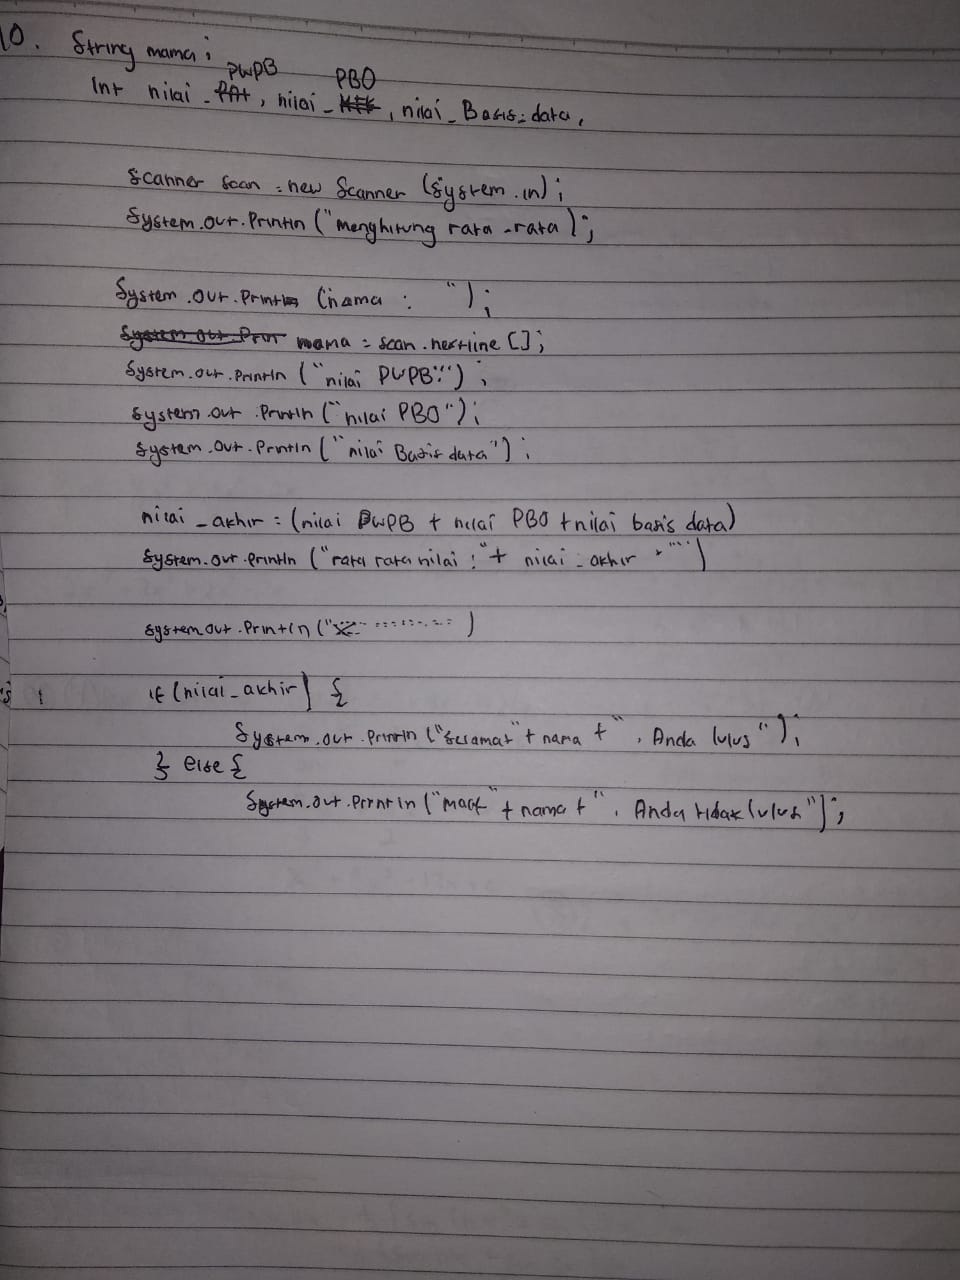 10. String mama;
PWPB PBO
Int nilai_, nilai_, nilai_Basis_data,
Scanner scan = new Scanner (System.in);
System.out.Println ("menghitung rata-rata);
System.out.Println ("nama : ");
mama = scan.nextline [];
System.out.Println ("nilai PWPB:");
System.out.Println ("nilai PBO");
System.out.Println ("nilai Basis data");
nilai_akhir = (nilai PWPB + nilai PBO + nilai basis data)
System.out.Println ("rata rata nilai : "+ nilai_akhir + "")
System.out.Println ("
if (nilai_akhir) {
System.out.Println ("selamat" + nama + ", Anda lulus");
} else {
System.out.Println ("maaf" + nama + ", Anda tidak lulus");